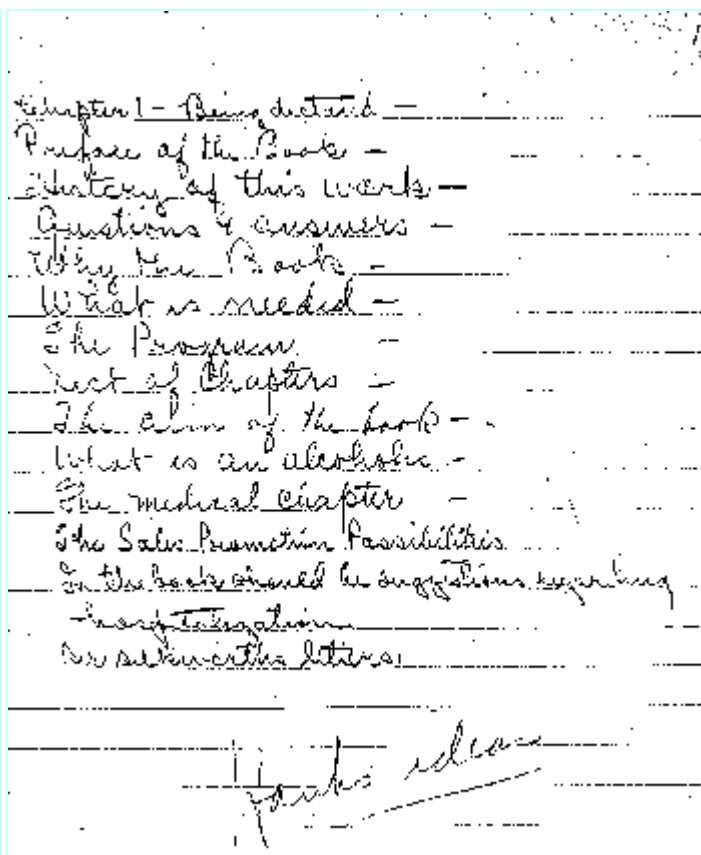 Chapter 1 - Being dictated -
Preface of the Book -
History of this work -
Questions & answers -
Why the Book -
What is needed -
The Program -
List of Chapters -
The aim of the book -
What is an alcoholic -
The medical chapter -
The Sales Promotion Possibilities
In the book should be suggestions regarding
hospitalization
Dr silkworths letters.
Hanks ideas